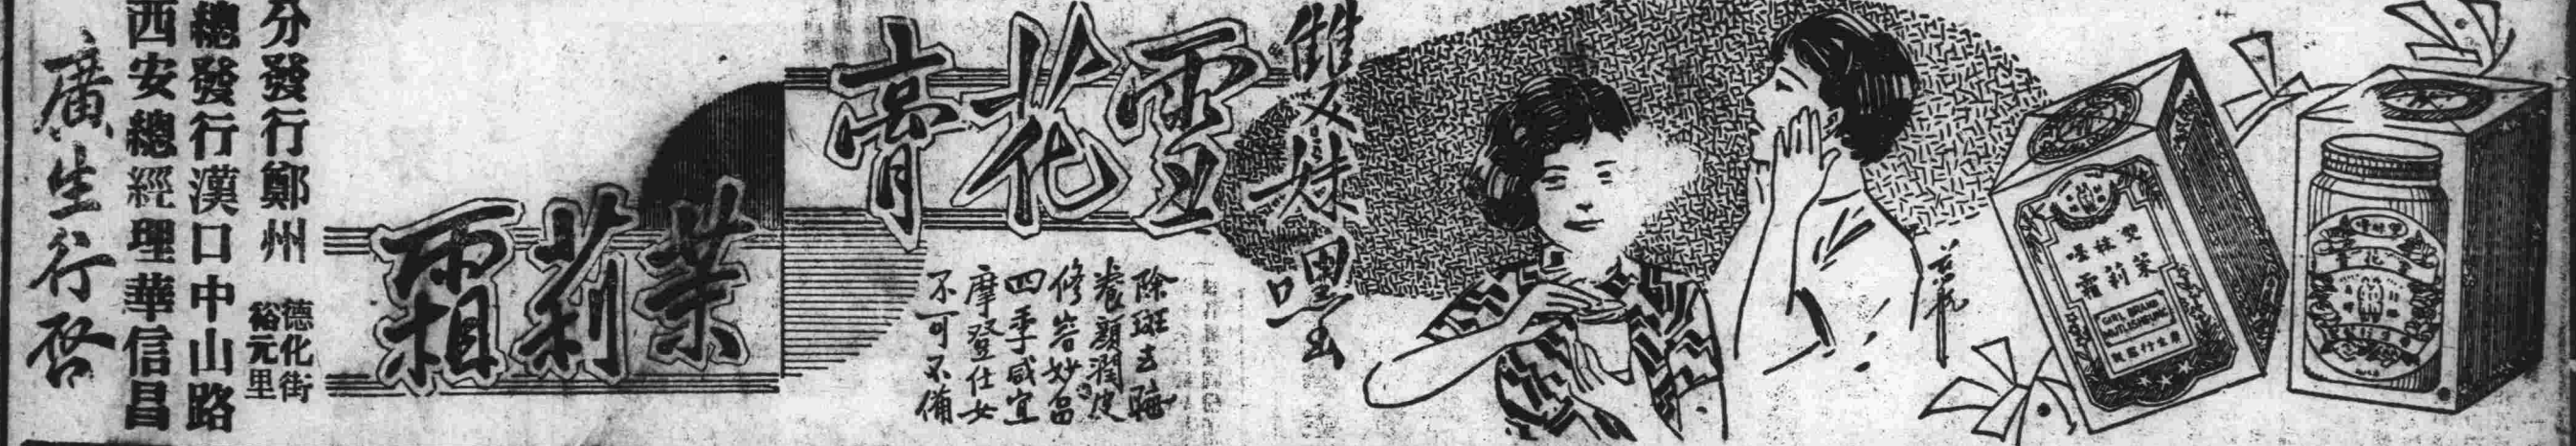 雙妹嘿
雪花膏
茉莉霜
除斑去
養顏潤皮
修容妙品
四季咸宜
摩登仕女
不可不備
雙妹嘜
茉莉霜
GIRL BRAND
廣生行監製
雙妹嘜
雪花膏
分發行鄭州 德化街裕元里
總發行漢口中山路
西安總經理華信昌
廣生行啓